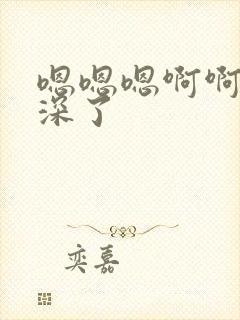 嗯嗯嗯啊啊
深了
奕嘉